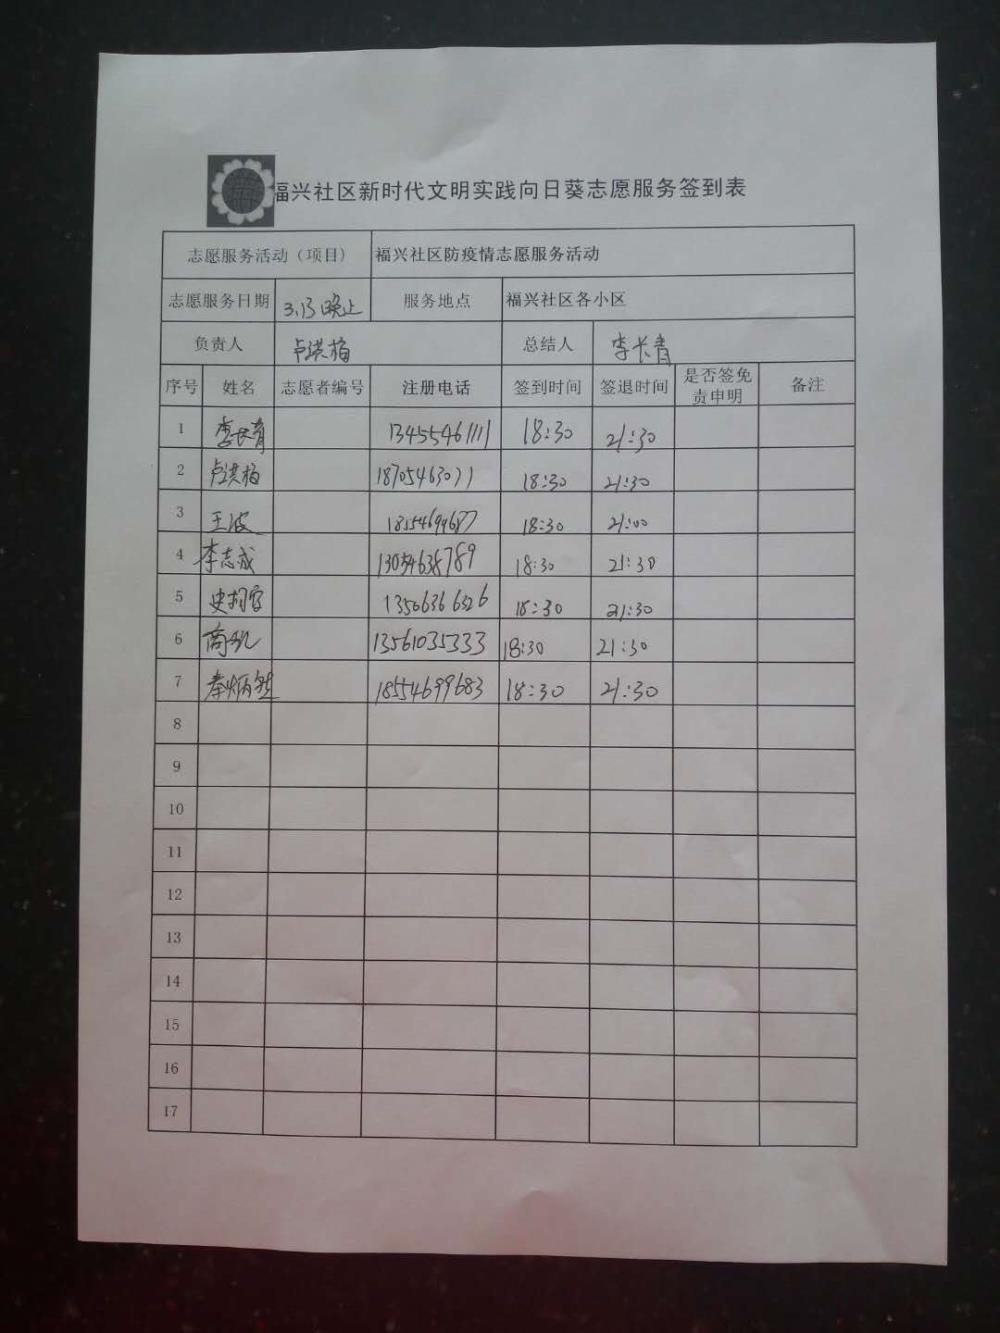 福兴社区新时代文明实践向日葵志愿服务签到表
志愿服务活动（项目） 福兴社区防疫情志愿服务活动
志愿服务日期 3.13晚上 服务地点 福兴社区各小区
负责人 卢洪梅 总结人 李长青
序号 姓名 志愿者编号 注册电话 签到时间 签退时间 是否签免责申明 备注
1 李长青 13455461111 18:30 21:30
2 卢洪梅 18705463071 18:30 21:30
3 王波 18:30 21:00
4 李志成 18:30 21:30
5 13506366326 18:30 21:30
6 13561035333 18:30 21:30
7 秦炳 18554699683 18:30 21:30
8
9
10
11
12
13
14
15
16
17